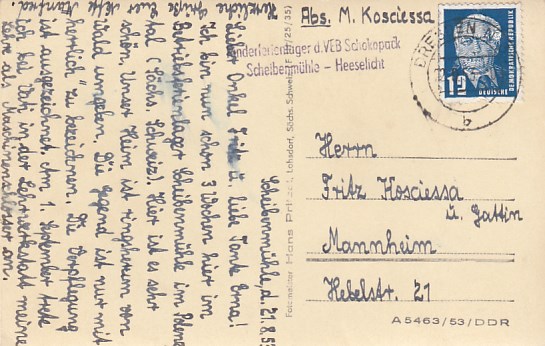 Scheibenmühle, d. 21.8.53
Lieber Onkel Fritz u. liebe Tante Erna!
Ich bin nun schon 3 Wochen hier im
Betriebsferienlager Scheibenmühle im Polenz-
tal (Sächs. Schweiz). Hier ist es sehr
schön. Unser Heim ist ringsherum von
Wald umgeben. Die Gegend ist nur mit
"herrlich" zu bezeichnen. Die Verpflegung
ist ausgezeichnet. Am 1. September trete
ich bei in der Lehrwerkstatt meine
Lehre als Maschinenschlosser an.
Herzliche Grüße Euer Neffe
Manfred.
Abs. M. Kosciessa
Kinderferienlager d. VEB Schokopack
Scheibenmühle – Heeselicht
DRESDEN
b
12
DEUTSCHE
DEMOKRATISCHE REPUBLIK
Herrn
Fritz Kosciessa
u. Gattin
Mannheim
Hebelstr. 21
Fotomaler Hans Lohsdorf, Sächs. Schweiz (F 1/25/35)
A 5463/53/DDR